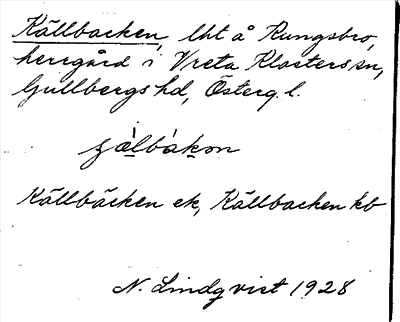 Källbacken, lht å Rungsbro,
herrgård i Vreta Klosters sn,
Gullbergs hd, Österg. l.
källbacken ek, Källbacken kb
N. Lindqvist 1928